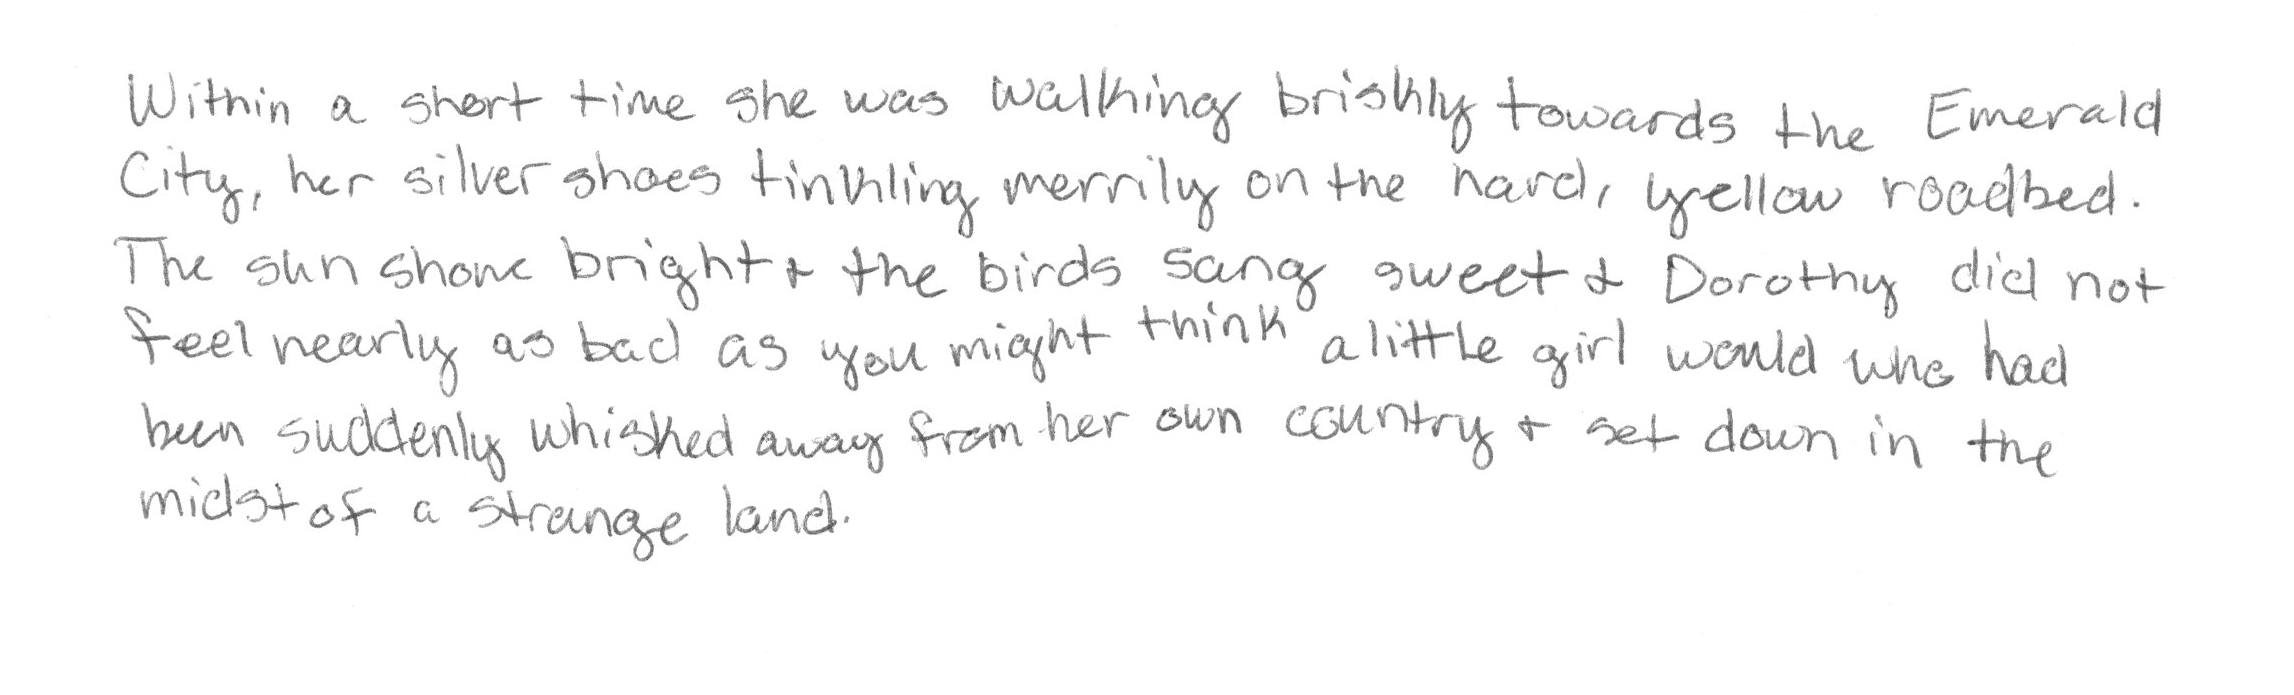 Within a short time she was walking briskly towards the Emerald
City, her silver shoes tinkling merrily on the hard, yellow roadbed.
The sun shone bright & the birds sang sweet & Dorothy did not
feel nearly as bad as you might think a little girl would who had
been suddenly whisked away from her own country & set down in the
midst of a strange land.